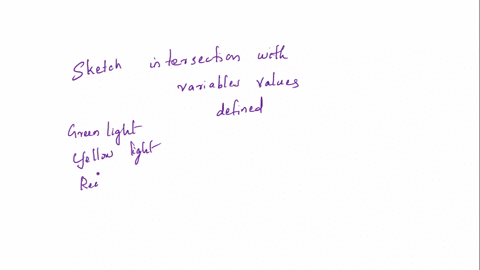 Sketch intersection with
variables values
defined
Green light
Yellow light
Rei